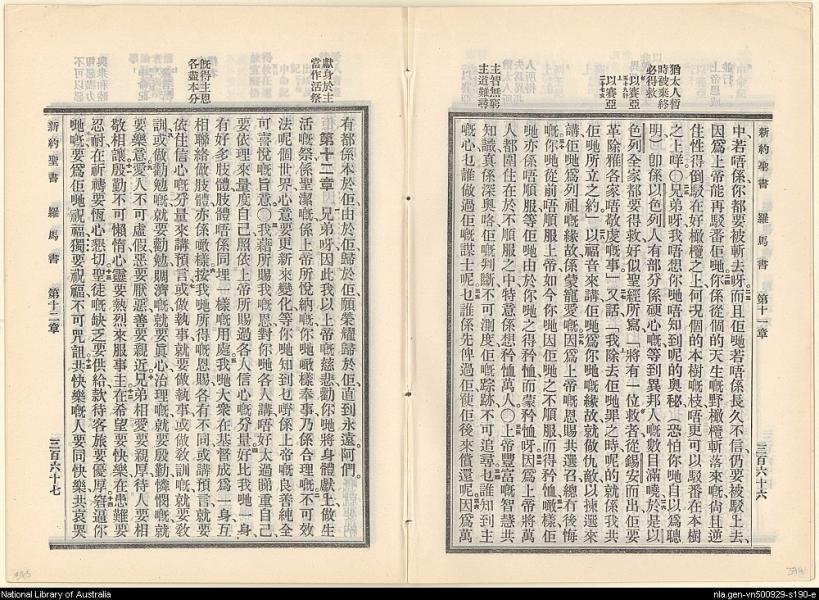 猶太人暫
時被棄終
必得救
以賽亞
五十九
以賽亞
二十七
主智無窮
主道難尋
新約聖書 羅馬書 第十一章 三百六十六
中、若唔係、你都要被斬去呀、而且佢哋若唔係長久不信、仍要被駁上去、
因爲上帝能再駁番佢哋、你係從個的天生嘅野橄欖斬落來嘅、尚且逆
住性得倒駁在好橄欖之上、何況個的本樹嘅枝、唔更可以駁番在本樹
之上咩○兄弟呀、我唔想你哋唔知到呢的奧秘、(恐怕你哋自以爲聰
明)卽係以色列人有部分係硬心嘅、等到異邦人嘅數目滿嘵、於是以
色列全家都要得救、好似聖經所寫、「將有一位救者、從錫安而出、佢要
革除雅各家唔敬虔嘅事」又話、「我除去佢哋罪之時、呢的就係我共
佢哋所立之約」以福音來講、佢哋爲你哋嘅緣故、就做仇敵、以揀選來
講、佢哋爲列祖嘅緣故、係蒙寵愛嘅、因爲上帝嘅恩賜共選召、總冇後悔
嘅、你哋從前唔順服上帝、如今你哋因佢哋之不順服、而得矜恤、噉樣佢
哋亦係唔順服、等佢哋由於你哋之得矜恤、而蒙矜恤呀、因爲上帝將萬
人都圍住在於不順服之中、特意係想矜恤萬人○上帝豐富嘅智慧共
知識、真係深奧咯、佢嘅判斷、不可測度、佢嘅踪跡、不可追尋、乜誰知到主
嘅心、乜誰做過佢嘅謀士呢、乜誰係先俾過佢、使佢後來償還呢、因爲萬
獻身於主
當作活祭
旣得主恩
各盡本分
有都係本於佢、由於佢、歸於佢、願榮耀歸於佢、直到永遠、阿們。
第十二章 兄弟呀、因此我以上帝嘅慈悲、勸你哋將身體獻上、做生
活嘅祭、係聖潔嘅、係上帝所悅納嘅、你哋噉樣奉事、乃係合理嘅、不可效
法呢個世界、心意要更新來變化、等你哋知到乜嘢係上帝嘅良善純全
可喜悅嘅旨意○我藉所賜我嘅恩、對你哋各人講、唔好太過睇重自己、
要依理來量度自己、照依上帝所賜過各人信心嘅分量、好比我哋一身
有好多肢體、肢體唔係同埋一樣嘅用處、我哋大衆在基督成爲一身、互
相聯絡做肢體、亦係噉樣、按我哋所得嘅恩賜、各有不同、或講預言、就要
依住信心嘅分量來講預言、或做執事、就要做執事、或做敎訓嘅、就要敎
訓、或做勸勉嘅、就要勸勉、賙濟嘅、就要眞心、治理嘅、就要殷勤、憐憫嘅、就
要樂意、愛人不可虛假、惡要厭惡、善要親近、兄弟相愛要親厚、待人要相
敬相讓、殷勤不可懶惰、心靈要熱烈、來服事主、在希望要快樂、在患難要
忍耐、在祈禱要恆心懇切、聖徒嘅缺乏要供給、款待客旅要優厚、窘逼你
哋嘅、要爲佢哋祝福、獨要祝福、不可咒詛、共快樂嘅人要同快樂、共哀哭
新約聖書 羅馬書 第十二章 三百六十七
National Library of Australia
nla.gen-vn500929-s190-e